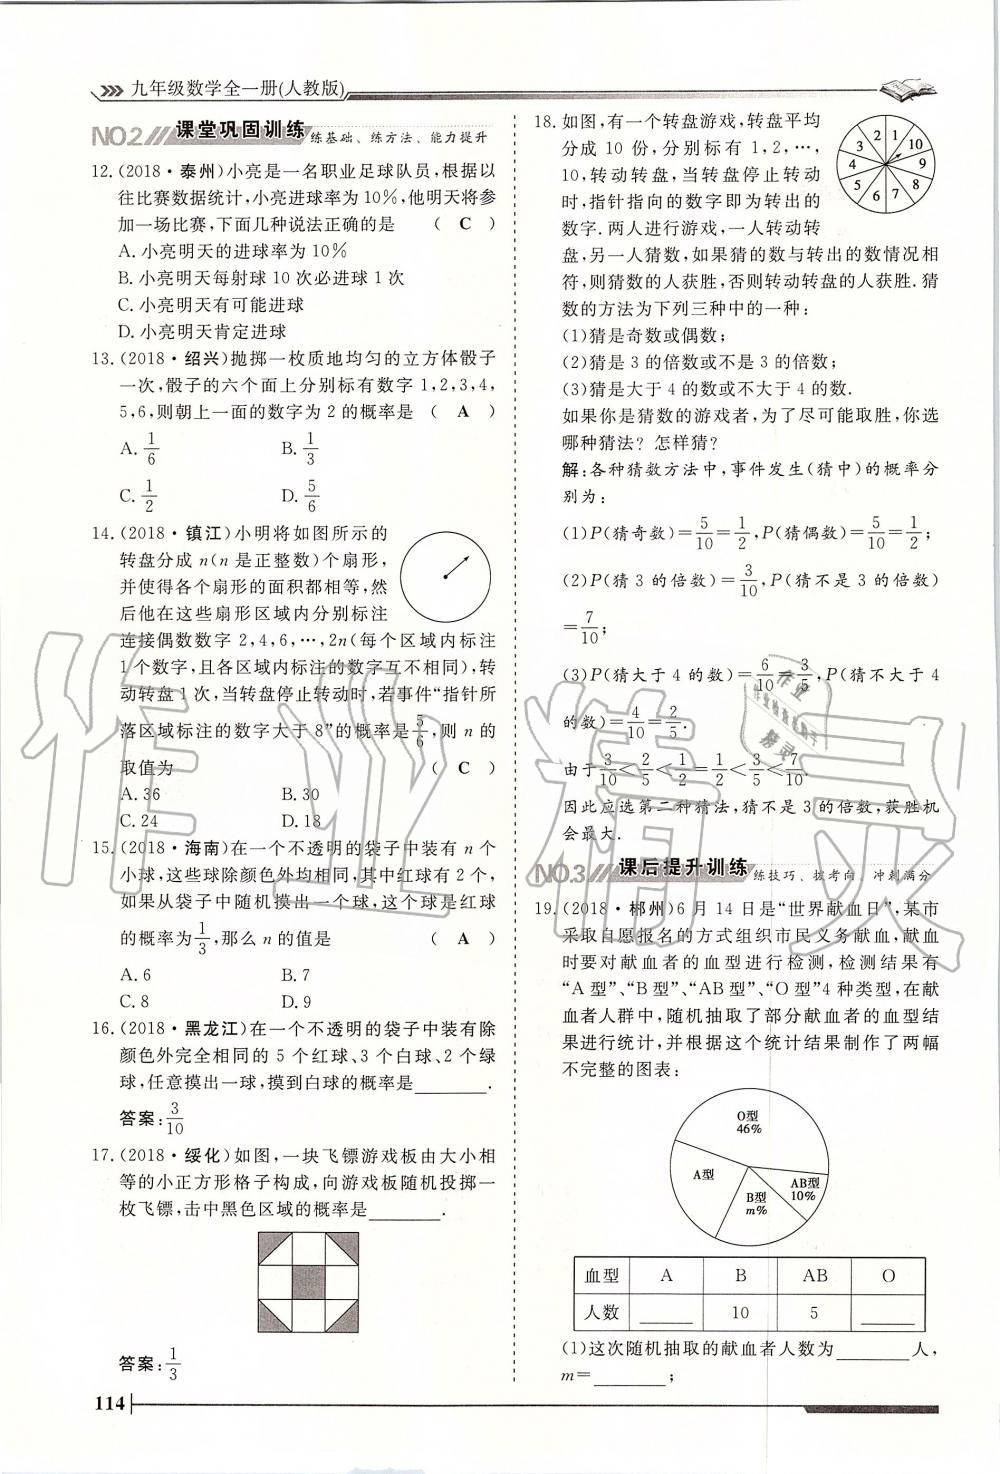 九年级数学全一册(人教版)
NO.2 课堂巩固训练 练基础、练方法、能力提升
12.(2018·泰州)小亮是一名职业足球队员,根据以
往比赛数据统计,小亮进球率为10%,他明天将参
加一场比赛,下面几种说法正确的是 ( C )
A.小亮明天的进球率为10%
B.小亮明天每射球10次必进球1次
C.小亮明天有可能进球
D.小亮明天肯定进球
13.(2018·绍兴)抛掷一枚质地均匀的立方体骰子
一次,骰子的六个面上分别标有数字1,2,3,4,
5,6,则朝上一面的数字为2的概率是 ( A )
A. 1/6 B. 1/3
C. 1/2 D. 5/6
14.(2018·镇江)小明将如图所示的
转盘分成n(n是正整数)个扇形,
并使得各个扇形的面积都相等,然
后他在这些扇形区域内分别标注
连接偶数数字2,4,6,…,2n(每个区域内标注
1个数字,且各区域内标注的数字互不相同),转
动转盘1次,当转盘停止转动时,若事件“指针所
落区域标注的数字大于8”的概率是5/6,则n的
取值为 ( C )
A.36 B.30
C.24 D.18
15.(2018·海南)在一个不透明的袋子中装有n个
小球,这些球除颜色外均相同,其中红球有2个,
如果从袋子中随机摸出一个球,这个球是红球
的概率为1/3,那么n的值是 ( A )
A.6 B.7
C.8 D.9
16.(2018·黑龙江)在一个不透明的袋子中装有除
颜色外完全相同的5个红球、3个白球、2个绿
球,任意摸出一球,摸到白球的概率是________.
答案:3/10
17.(2018·绥化)如图,一块飞镖游戏板由大小相
等的小正方形格子构成,向游戏板随机投掷一
枚飞镖,击中黑色区域的概率是________.
答案:1/3
114
18.如图,有一个转盘游戏,转盘平均
分成10份,分别标有1,2,…,
10,转动转盘,当转盘停止转动
时,指针指向的数字即为转出的
数字.两人进行游戏,一人转动转
盘,另一人猜数,如果猜的数与转出的数情况相
符,则猜数的人获胜,否则转动转盘的人获胜.猜
数的方法为下列三种中的一种:
1 2 3 4 5 6 7 8 9 10
(1)猜是奇数或偶数;
(2)猜是3的倍数或不是3的倍数;
(3)猜是大于4的数或不大于4的数.
如果你是猜数的游戏者,为了尽可能取胜,你选
哪种猜法?怎样猜?
解:各种猜数方法中,事件发生(猜中)的概率分
别为:
(1)P(猜奇数)=5/10=1/2,P(猜偶数)=5/10=1/2;
(2)P(猜3的倍数)=3/10,P(猜不是3的倍数)
=7/10;
(3)P(猜大于4的数)=6/10=3/5,P(猜不大于4
的数)=4/10=2/5.
由于3/10<2/5<1/2=1/2<3/5<7/10.
因此应选第二种猜法,猜不是3的倍数,获胜机
会最大.
NO.3 课后提升训练 练技巧、拔考向、冲刺满分
19.(2018·郴州)6月14日是“世界献血日”,某市
采取自愿报名的方式组织市民义务献血,献血
时要对献血者的血型进行检测,检测结果有
“A型”、“B型”、“AB型”、“O型”4种类型,在献
血者人群中,随机抽取了部分献血者的血型结
果进行统计,并根据这个统计结果制作了两幅
不完整的图表:
O型
46%
A型
B型
m%
AB型
10%
血型 A B AB O
人数 ____ 10 5 ____
(1)这次随机抽取的献血者人数为________人,
m=________;
作业精灵